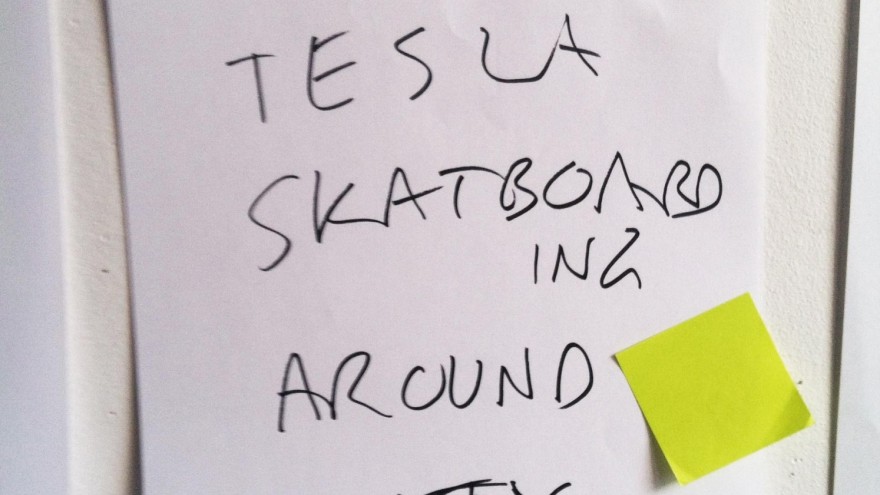 TESLA
SKATBOARD
ING
AROUND